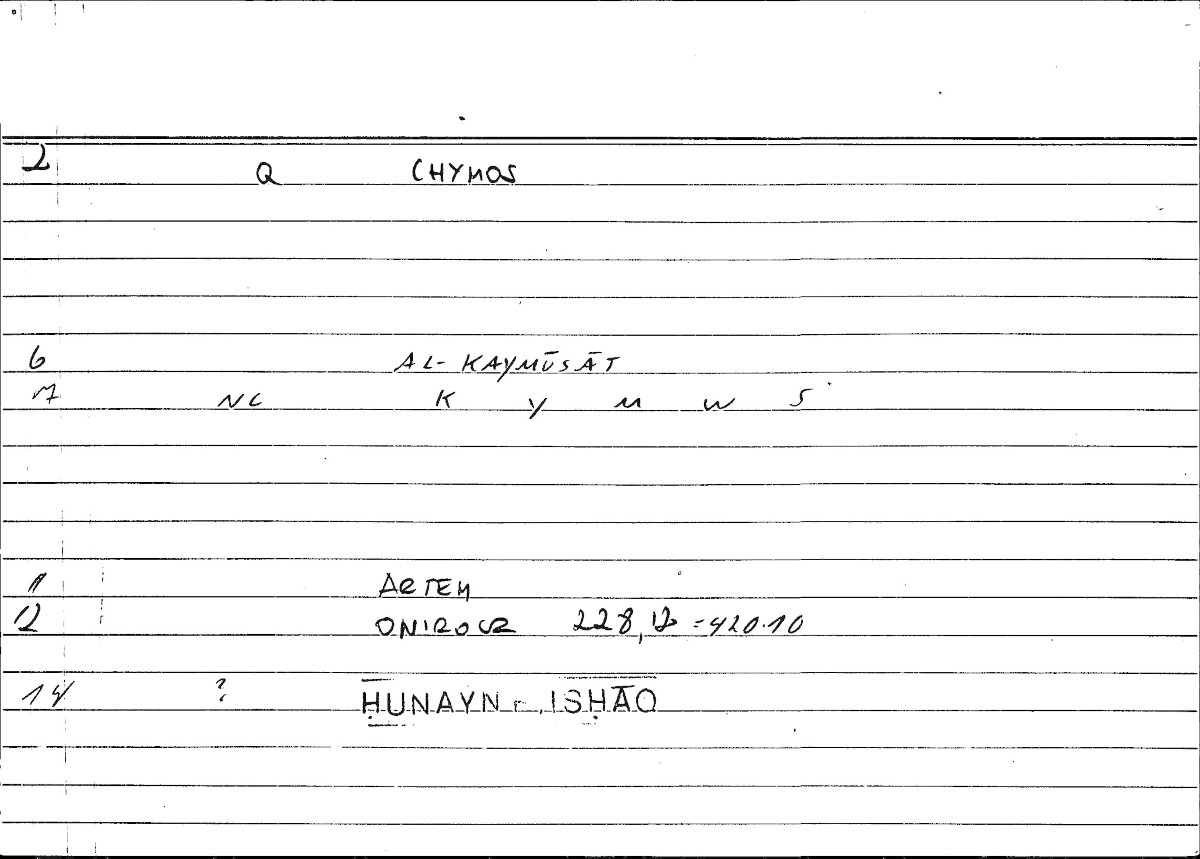 2 Q CHYMOS
6 AL-KAYMŪSĀT
7 NC K Y M W S
11 ARTEM
12 ONIROCR 228,12 = 420.10
14 ? ḤUNAYN ISḤĀQ